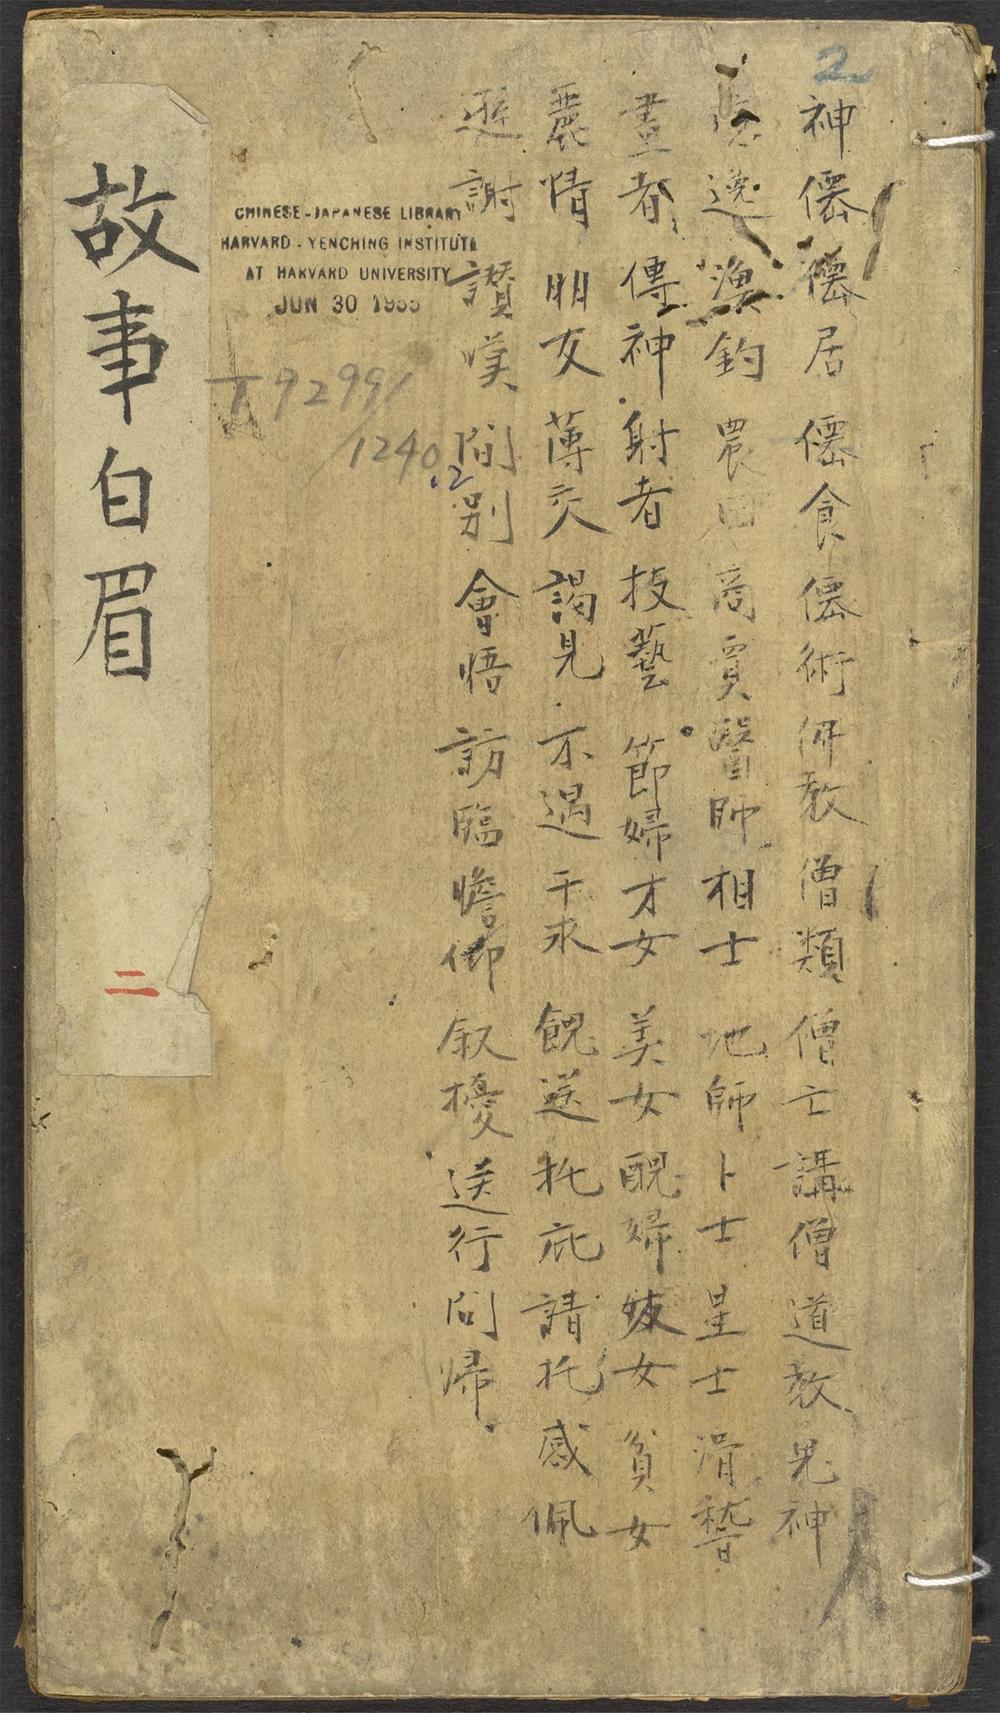 2
神僊 僊居 僊食 僊術 佛教 僧類 僧亡 講僧 道教 鬼神
隱逸 漁釣 農田 商賈 醫師 相士 地師 卜士 星士 滑稽
畫者 傳神 射者 技藝 節婦 才女 美女 醜婦 妓女 貧女
麗情 明友 薄交 謁見 不遇 干求 餽送 托庇 請托 感佩
遜謝 讃嘆 間別 會悟 訪臨 瞻仰 叙擾 送行 問歸
CHINESE-JAPANESE LIBRARY
HARVARD-YENCHING INSTITUTE
AT HARVARD UNIVERSITY
JUN 30 1955
T 9299/
1240.2
故事白眉
二